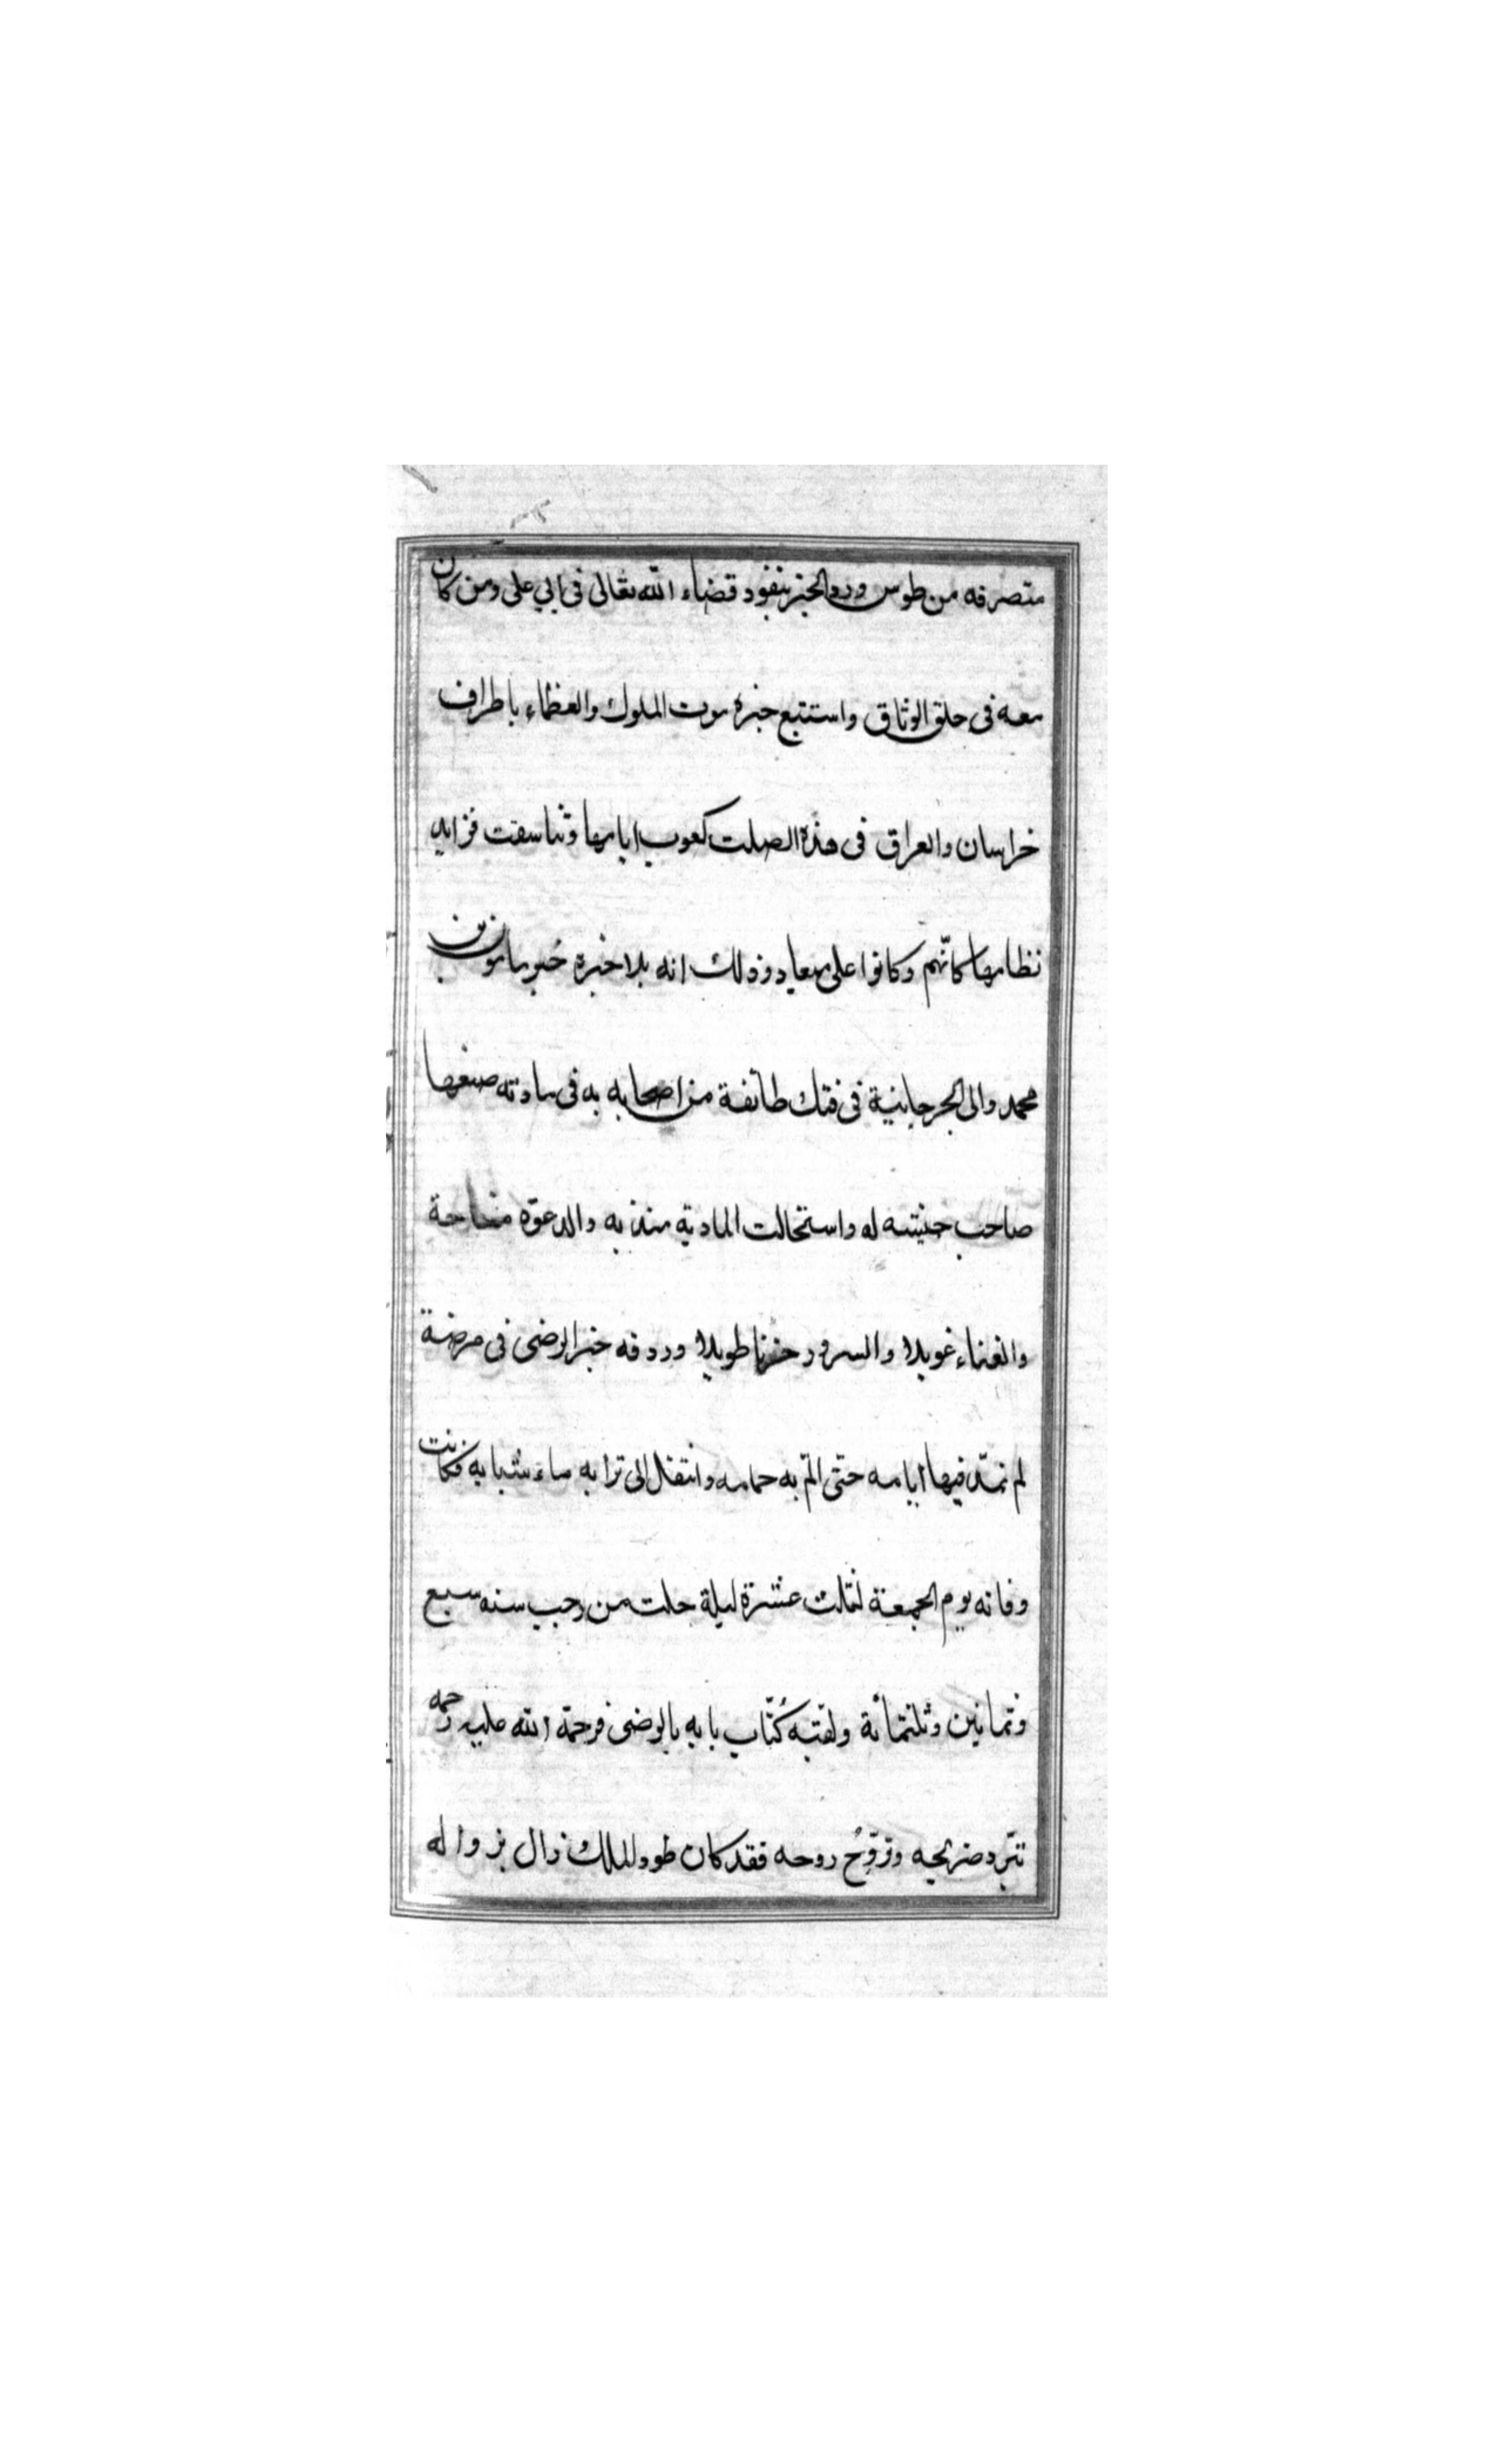 متصرفه من طوس ورد الخبر بنفود قضاء الله تعالى فى ابي على ومن كان
معه فى حلق الوثاق واستتبع خبره موت الملوك والعظماء باطراف
خراسان والعراق فى هذه الصلت كعوب ايامها وتناسقت فرايد
نظامها كانّهم وكانوا على ميعاد وذلك انه بلا خبره خبر مامون بن
محمد والى الجرجانية فى فتك طائفة من اصحابه به فى مادته صنعها
صاحب جيشه له واستحالت المادية مندبه والدعوة مناحة
والغناء عويلا والسرور حزنا طويلا وردفه خبر الرضى فى مرضة
لم تمتدّ فيها ايامه حتّى المّ به حمامه وانتقل الى ترابه ماء شبابه فكانت
وفاته يوم الجمعة لثلث عشرة ليلة خلت من رجب سنه سبع
وثمانين وثلثمائة ولقبته كُتّاب بابه بالرضى فرحمة الله عليه رحمه
تبّرد ضريحه وتروّحُ روحه فقد كان طود الملك زال بزواله